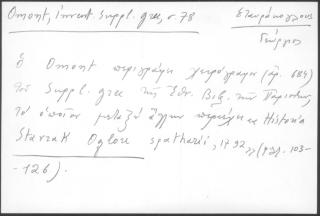 Omont, Invent. Suppl. grec, σ. 78
Σταυράκογλους
Γεώργιος
Ὁ Omont περιγράφει χειρόγραφον (ἀρ. 684)
τοῦ Suppl. grec τῆς Ἐθν. Βιβ. τῶν Παρισίων,
τὸ ὁποῖον μεταξὺ ἄλλων περιέχει « Historia
Starzak Oglou spatharii, 1792 » (φφ. 103-
-126).